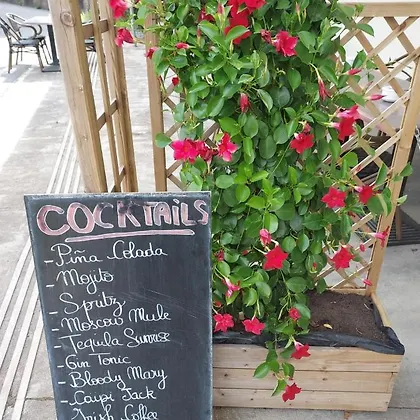 COCKTAILS
- Piña Colada
- Mojito
- Spritz
- Moscow Mule
- Tequila Sunrise
- Gin Tonic
- Bloody Mary
- Caipi Jack
- Irish Coffee